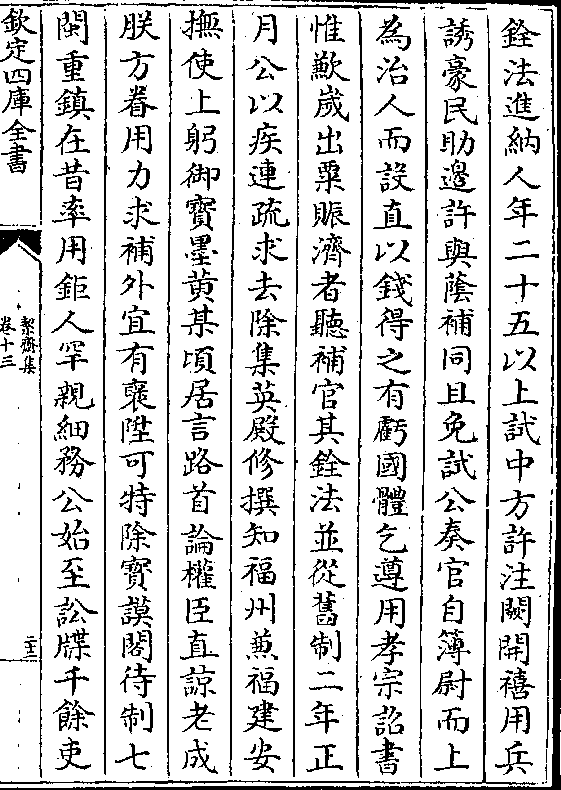 銓法進納人年二十五以上試中方許注闕開禧用兵
誘豪民助邊許與蔭補同且免試公奏官自簿尉而上
為治人而設直以錢得之有虧國體乞遵用孝宗詔書
惟歉嵗出粟賑濟者聽補官其銓法並從舊制二年正
月公以疾連疏求去除集英殿修撰知福州兼福建安
撫使上躬御寳墨黄某頃居言路首論權臣直諒老成
朕方眷用力求補外宜有襃陞可特除寳謨閣待制七
閩重鎮在昔率用鉅人罕親細務公始至訟牒千餘吏
欽定四庫全書
絜齋集
卷十三
二十三